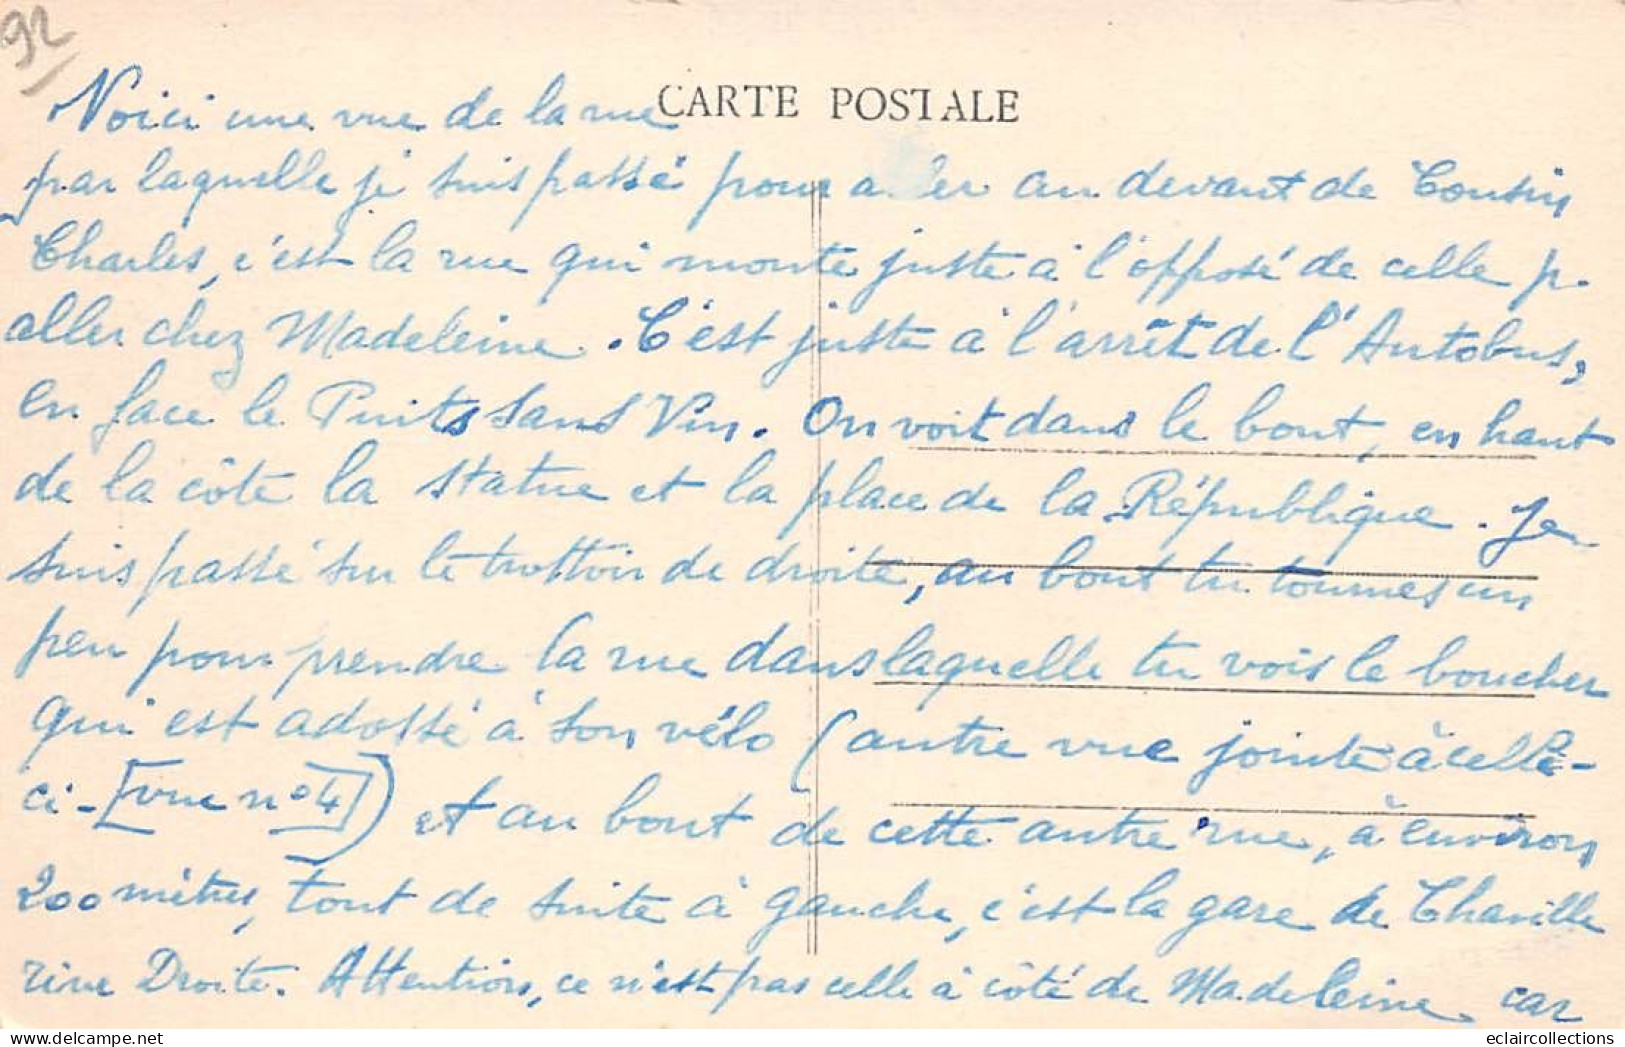 92
CARTE POSTALE
Voici une vue de la rue
par laquelle je suis passé pour aller au devant de Cousin
Charles, c'est la rue qui monte juste à l'opposé de celle p.
aller chez Madeleine. C'est juste à l'arrêt de l'Autobus,
en face le Puits sans Vin. On voit dans le bout, en haut
de la côte la statue et la place de la République. Je
suis passé sur le trottoir de droite, au bout tu tournes un
peu pour prendre la rue dans laquelle tu vois le boucher
qui est adossé à son vélo (autre vue jointe à celle-
ci - [vue n° 4]) et au bout de cette autre rue, à environ
200 mètres, tout de suite à gauche, c'est la gare de Chaville
rive Droite. Attention, ce n'est pas celle à côté de Madeleine, car
eclaircollections